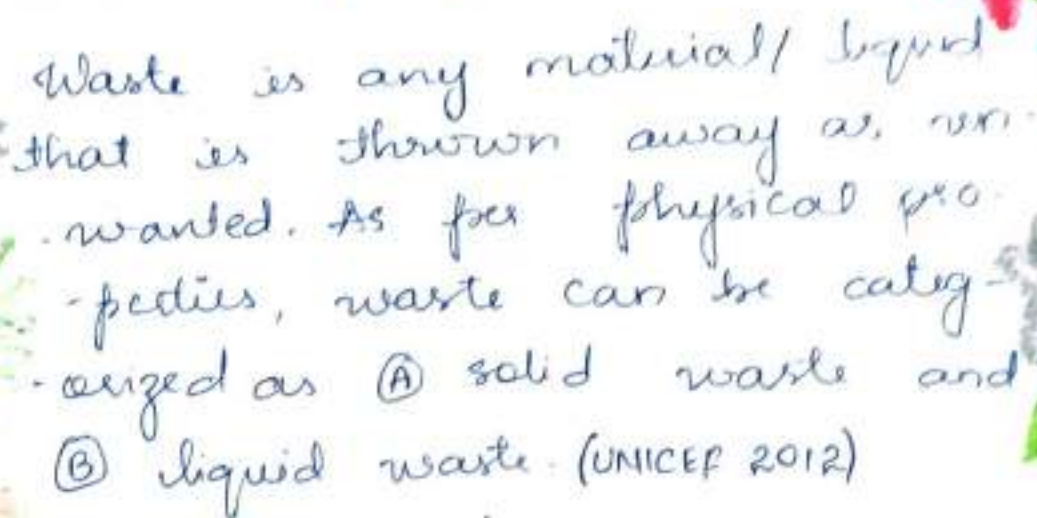 Waste is any material/ liquid
that is thrown away as un-
-wanted. As per physical pro-
-perties, waste can be categ-
-orized as Ⓐ solid waste and
Ⓑ liquid waste. (UNICEF 2012)